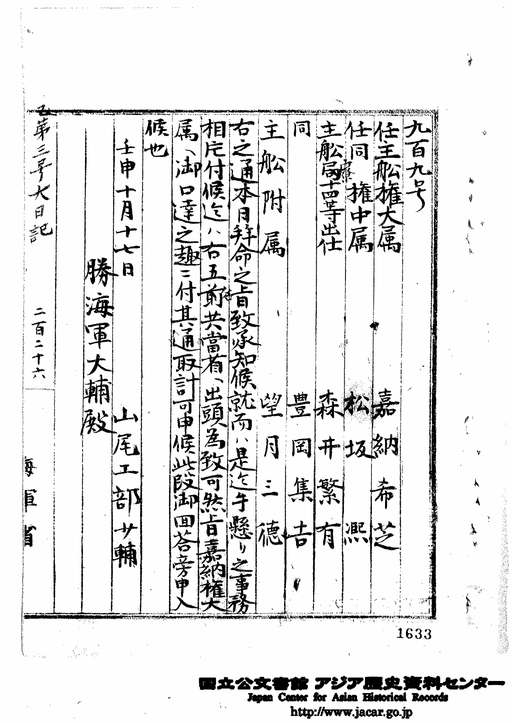 九百九号
任主船権大属 嘉納希芝
任同権中属 松坂凞
主船寮十四等出仕 森井繁有
同 豊岡集吉
主船附属 望月三徳
右之通本月拝命之旨致承知候就而ハ是迄手懸り之事務
相片付候迄ハ右五前共當省ヘ出頭為致可然旨嘉納権大
属ヘ御口達之趣ニ付其通取計可申候此段御回答旁申入
候也
壬申十月十七日 山尾工部少輔
勝海軍大輔殿
乙第三号大日記 二百二十六 海軍省
1633
国立公文書館 アジア歴史資料センター
Japan Center for Asian Historical Records
http://www.jacar.go.jp